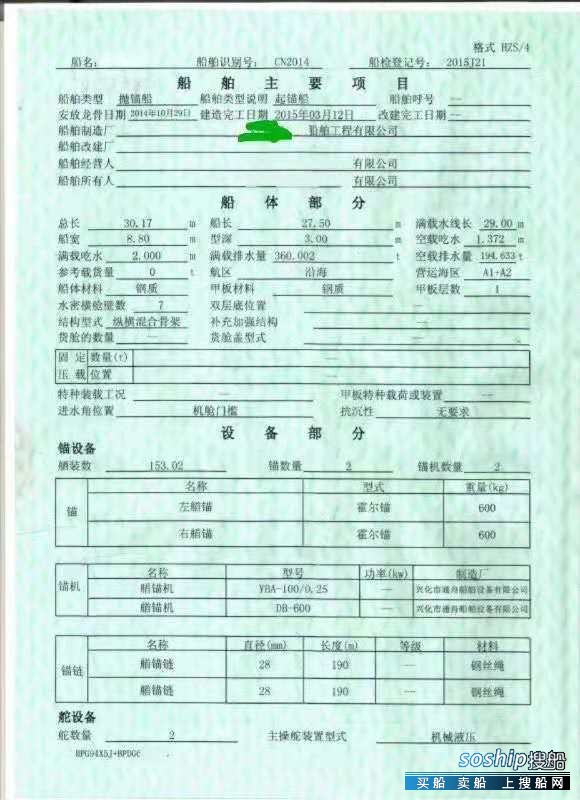 格式 HZS/4
船名： 船舶识别号： CN2014 船检登记号： 2015J21
船舶主要项目
船舶类型 抛锚船 船舶类型说明 起锚船 船舶呼号 —
安放龙骨日期 2014年10月29日 建造完工日期 2015年03月12日 改建完工日期 —
船舶制造厂 船舶工程有限公司
船舶改建厂
船舶经营人 有限公司
船舶所有人 有限公司
船体部分
总长 30.17 m 船长 27.50 m 满载水线长 29.00 m
船宽 8.80 m 型深 3.00 m 空载吃水 1.372 m
满载吃水 2.000 m 满载排水量 360.002 t 空载排水量 194.633 t
参考载货量 0 t 航区 沿海 营运海区 A1+A2
船体材料 钢质 甲板材料 钢质 甲板层数 1
水密横舱壁数 7 双层底位置 —
结构型式 纵横混合骨架 补充加强结构 —
货舱的数量 — 货舱盖型式 —
固定 数量(t) —
压载 位置 —
特种装载工况 — 甲板特种载荷或装置 —
进水角位置 机舱门槛 抗沉性 无要求
设备部分
锚设备
舾装数 153.02 锚数量 2 锚机数量 2
锚 名称 型式 重量(kg)
左艏锚 霍尔锚 600
右艏锚 霍尔锚 600
锚机 名称 型号 功率(kw) 制造厂
艏锚机 YBA-100/0.25 — 兴化市通舟船舶设备有限公司
艏锚机 DB-600 — 兴化市通舟船舶设备有限公司
锚链 名称 直径(mm) 长度(m) 等级 材料
艏锚链 28 190 — 钢丝绳
艏锚链 28 190 — 钢丝绳
舵设备
舵数量 2 主操舵装置型式 机械液压
soship搜船
买船 卖船 上搜船网